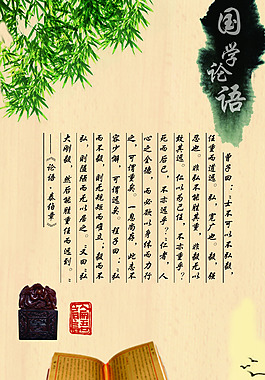 国学论语
曾子曰：“士不可以不弘毅，
任重而道远。弘，宽广也。毅，强
忍也。非弘不能胜其重，非毅无以
致其远。仁以为己任，不亦重乎？
死而后已，不亦远乎？”仁者，人
心之全德，而必欲以身体而力行
之，可谓重矣。一息尚存，此志不
容少懈，可谓远矣。程子曰：“弘
而不毅，则无规矩而难立；毅而不
弘，则隘陋而无以居之。”又曰：“弘
大刚毅，然后能胜重任而远到。”
——《论语·泰伯章》